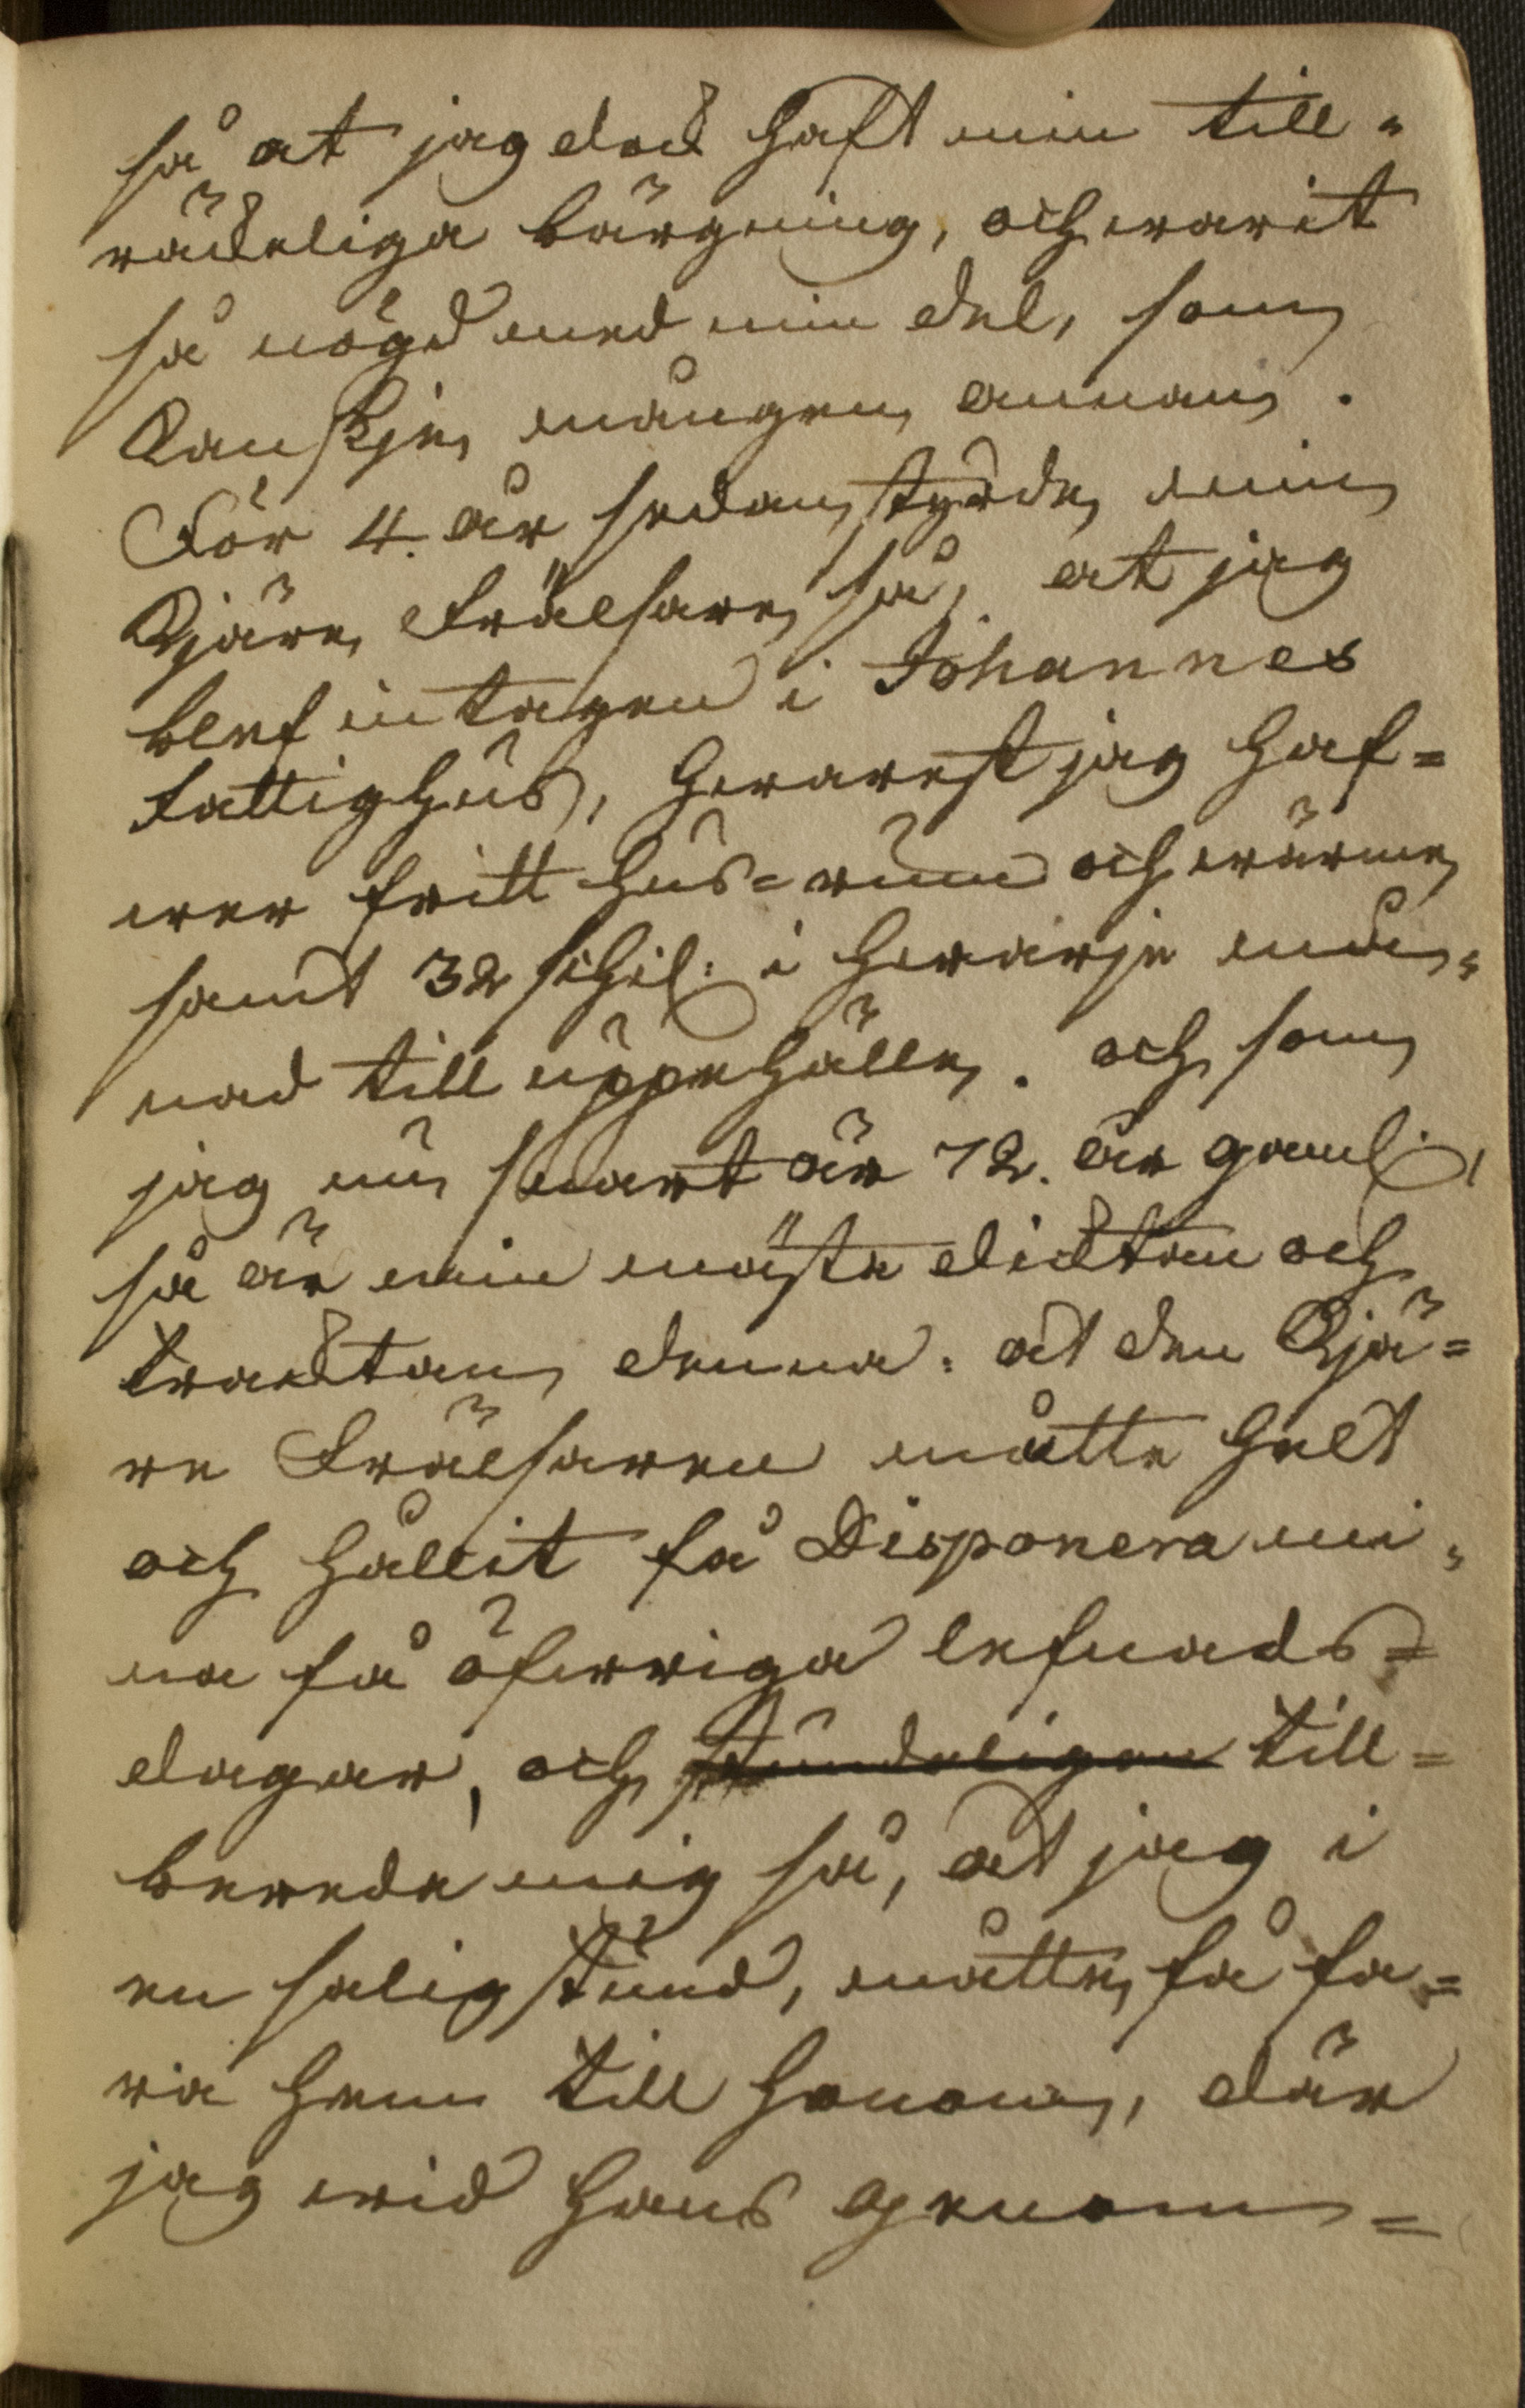 så at jag dock haft min till-
räckeliga bärgning, och warit
så nögd med min del, som
kanskje mången annan.
För 4. år sedan styrde min
kjäre Frälsare så, at jag
blef intagen i Johannes
fattighus, hwarest jag haf=
wer fritt hus=rum och wärme
samt 32 schil: i hwarje må-
nad till uppehälle. och som
jag nu snart är 72. år gaml:
så är min mästa dicktan och
tracktan denna: at den kjä=
re Frälsaren måtte helt
och hållit få Disponera mi-
na få öfwriga lefnads=
dagar, och stundeligen till=
bereda mig så, at jag i
en salig stund, måtte få fa=
ra hem till honom, där
jag wid hans genom=